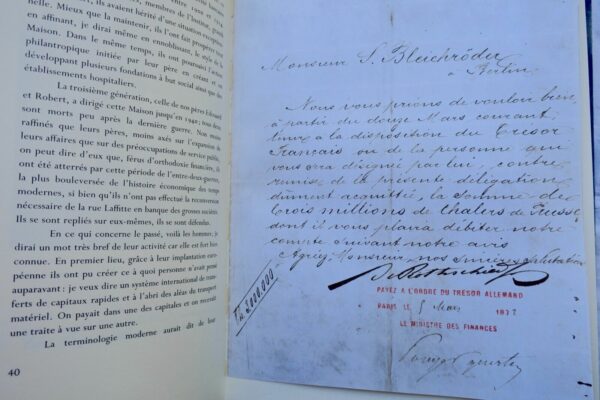 membres de l'Institut, grands
ils avaient hérité d'une situation exceptionnelle
nelle. Mieux que la maintenir, ils l'ont fait prospérer
en affinant, je dirai même en ennoblissant, le style de la
Maison. Dans le même temps, ils ont poursuivi l'action
philanthropique initiée par leur père en créant et en
développant plusieurs fondations à but social ainsi que des
établissements hospitaliers.
La troisième génération, celle de nos pères Edouard
et Robert, a dirigé cette Maison jusqu'en 1940; tous deux
sont morts peu après la dernière guerre. Non moins
raffinés que leurs pères, moins axés sur l'expansion de
leurs affaires que sur des préoccupations de service public,
on peut dire d'eux que, férus d'orthodoxie financière, ils
ont été atterrés par cette période de l'entre-deux-guerres,
la plus bouleversée de l'histoire économique des temps
modernes, si bien qu'ils n'ont pas effectué la reconversion
nécessaire de la rue Laffitte en banque des grosses sociétés.
Ils se sont repliés sur eux-mêmes, ils se sont défendus.
En ce qui concerne le passé, voilà les hommes; je
dirai un mot très bref de leur activité car elle est fort bien
connue. En premier lieu, grâce à leur implantation euro-
péenne ils ont pu créer ce à quoi personne n'avait pensé
auparavant : je veux dire un système international de trans-
ferts de capitaux rapides et à l'abri des aléas du transport
matériel. On payait dans une des capitales et on recevait
une traite à vue sur une autre.
La terminologie moderne aurait dit de leur
40
Monsieur S. Bleichröder
à Berlin
Nous vous prions de vouloir bien,
à partir du douze Mars courant,
tenir à la disposition du Trésor
Français ou de la personne qui
vous sera désigné par lui, contre
remise de la présente délégation
dûment acquittée, la somme de
Trois millions de Thalers de Prusse
dont il vous plaira débiter notre
compte suivant notre avis
Agréez, Monsieur, nos sincères salutations
de Rothschild
Th 3,000,000
PAYEZ A L'ORDRE DU TRÉSOR ALLEMAND
PARIS LE 5 Mars 187
LE MINISTRE DES FINANCES
Pouyer Quertier